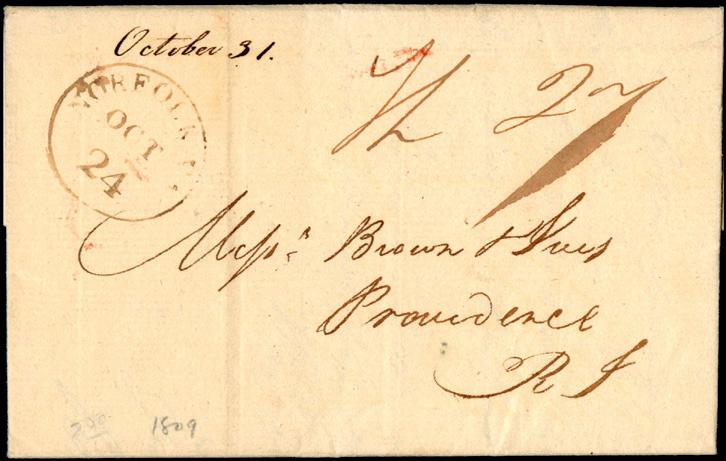 October 31.
NORFOLK
OCT
24
Messrs Brown & Ives
Providence
R I
1809